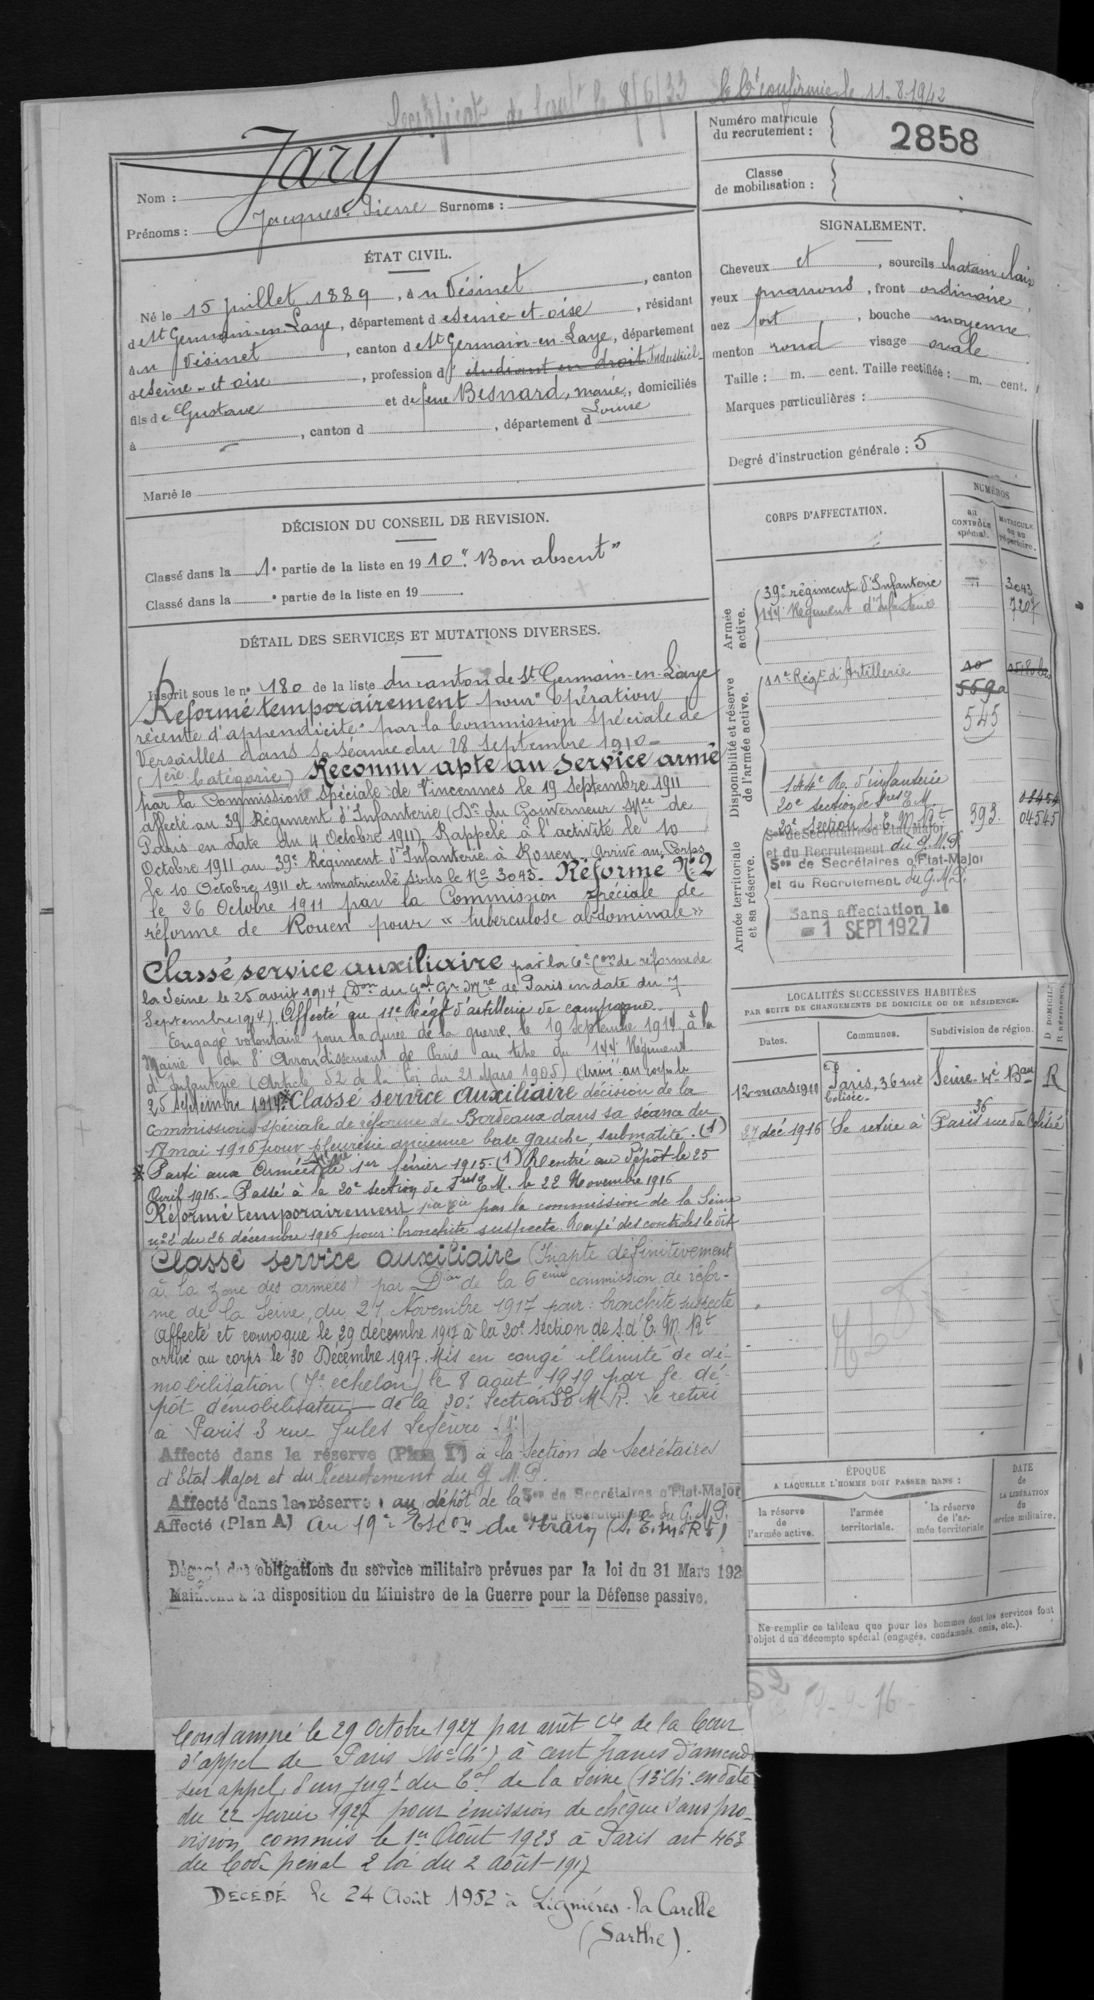 Certificat de le 8/6/33 confirmé le 11-8-1942
Numéro matricule
du recrutement : 2858
Classe
de mobilisation :
Nom : Jary
Prénoms : Jacques Pierre Surnoms :
ÉTAT CIVIL.
Né le 15 juillet 1889, au Vésinet, canton
de St Germain-en-Laye, département de Seine-et-oise, résidant
au Vésinet, canton de St Germain-en-Laye, département
de Seine-et-oise, profession d étudiant en droit Industriel
fils de Gustave et de feue Besnard, Marie, Louise, domiciliés
à , canton d , département d
Marié le
SIGNALEMENT.
Cheveux et , sourcils chatain clair
yeux marrons, front ordinaire,
nez fort, bouche moyenne
menton rond visage ovale
Taille : m. cent. Taille rectifiée : m. cent.
Marques particulières :
Degré d'instruction générale : 5
DÉCISION DU CONSEIL DE REVISION.
Classé dans la 1e partie de la liste en 1910 " Bon absent "
Classé dans la e partie de la liste en 19
DÉTAIL DES SERVICES ET MUTATIONS DIVERSES.
Inscrit sous le no 180 de la liste du canton de St Germain-en-Laye
Réformé temporairement pour " opération
récente d'appendicite " par la Commission spéciale de
Versailles dans sa séance du 28 septembre 1910-
(1ère Catégorie) Reconnu apte au Service armé
par la Commission spéciale de Vincennes le 19 septembre 1911
affecté au 39e Régiment d'Infanterie (Don du Gouverneur Mre de
Paris en date du 4 Octobre 1911). Rappelé à l'activité le 10
Octobre 1911 au 39e Régiment d'Infanterie à Rouen. Arrivé au Corps
le 10 Octobre 1911 et immatriculé sous le No 3043- Réformé No 2
le 26 Octobre 1911 par la Commission spéciale de
réforme de Rouen pour « tuberculose abdominale »
Classé service auxiliaire par la 6e Con de réforme de
la Seine le 25 avril 1914 (Don du Gal Gr Mre de Paris en date du 7
Septembre 1914). Affecté au 11e Régt d'artillerie de campagne
Engagé volontaire pour la durée de la guerre le 19 septembre 1914 à la
Mairie du 8e Arrondissement de Paris au titre du 144e Régiment
d'Infanterie (Article 52 de la loi du 21 Mars 1905) Arrivé au corps le
25 septembre 1914. * Classé service auxiliaire décision de la
commission spéciale de réforme de Bordeaux dans sa séance du
18 mai 1916 pour pleurésie ancienne base gauche, submatité. (1)
* Parti aux Armées le 1er février 1915. (1) Rentré au Dépôt le 25
Avril 1916. - Passé à la 20e section de Sres E. M. le 22 Novembre 1916
Réformé temporairement par la commission de la Seine
no 2 du 26 décembre 1916 pour: bronchite suspecte. Rayé des contrôles le dit
Classé service auxiliaire (Inapte définitivement
à la zone des armées) par Don de la 6ème commission de réfor-
me de la Seine du 27 Novembre 1917 pour: bronchite suspecte
Affecté et convoqué le 29 décembre 1917 à la 20e section de S. d'E. M. Rt
arrivé au corps le 30 Décembre 1917. Mis en congé illimité de dé-
mobilisation (7e échelon) le 8 août 1919 par le dé-
pôt démobilisateur de la 20e Section SE M R. Se retire
à Paris 3 rue Jules Lefèvre
Affecté dans la réserve (Plan T) à la Section de Secrétaires
d'Etat Major et du Recrutement du G. M. P.
Affecté dans la réserve au dépôt de la Son de Secrétaires d'Etat-Major
et du Recrutement du G.M.P.
Affecté (Plan A) au 19e Escon du train (S. E. M. Rt)
Dégagé des obligations du service militaire prévues par la loi du 31 Mars 192
Maintenu à la disposition du Ministre de la Guerre pour la Défense passive.
Condamné le 29 Octobre 1927 par arrêt Cre de la Cour
d'appel de Paris à cent francs d'amende
sur appel d'un jugt du Tal de la Seine (13e Ch en date
du 22 fevrier 1927 pour émission de chèque sans pro-
vision commis le 1er Août 1923 à Paris art 463
du Code pénal 2 loi du 2 août 1917
DÉCÉDÉ le 24 Août 1952 à Lignières-la Carelle
(Sarthe).
CORPS D'AFFECTATION.
NUMÉROS
au
CONTRÔLE
spécial.
MATRICULE
ou au
répertoire.
Armée
active.
39e régiment d'Infanterie 3043
144e Régiment d'Infanterie 7207
Disponibilité et réserve
de l'armée active.
11e Régt d'Artillerie
559
545
144e Rg. d'infanterie
20e section de Sres E. M.
20e Section S. E. M. Rt 393 04545
Armée territoriale
et sa réserve.
Son de Secrétaires d'Etat-Major
et du Recrutement du G.M.P.
Son de Secrétaires d'Etat-Major
et du Recrutement du G.M.P.
Sans affectation le
1 SEPT 1927
LOCALITÉS SUCCESSIVES HABITÉES
PAR SUITE DE CHANGEMENTS DE DOMICILE OU DE RÉSIDENCE.
Dates.
Communes.
Subdivision de région.
D DOMICILE
R RÉSIDENCE
12 mars 1910 Paris, 36 rue Colisée. Seine. 4e Bau R
27 déc 1916 Se retire à Paris 36 rue du Colisée
ÉPOQUE
A LAQUELLE L'HOMME DOIT PASSER DANS :
la réserve
de
l'armée active.
l'armée
territoriale.
la réserve
de l'ar-
mée territoriale
DATE
de
LA LIBÉRATION
du
service militaire.
Ne remplir ce tableau que pour les hommes dont les services font
l'objet d'un décompte spécial (engagés, condamnés, omis, etc.).